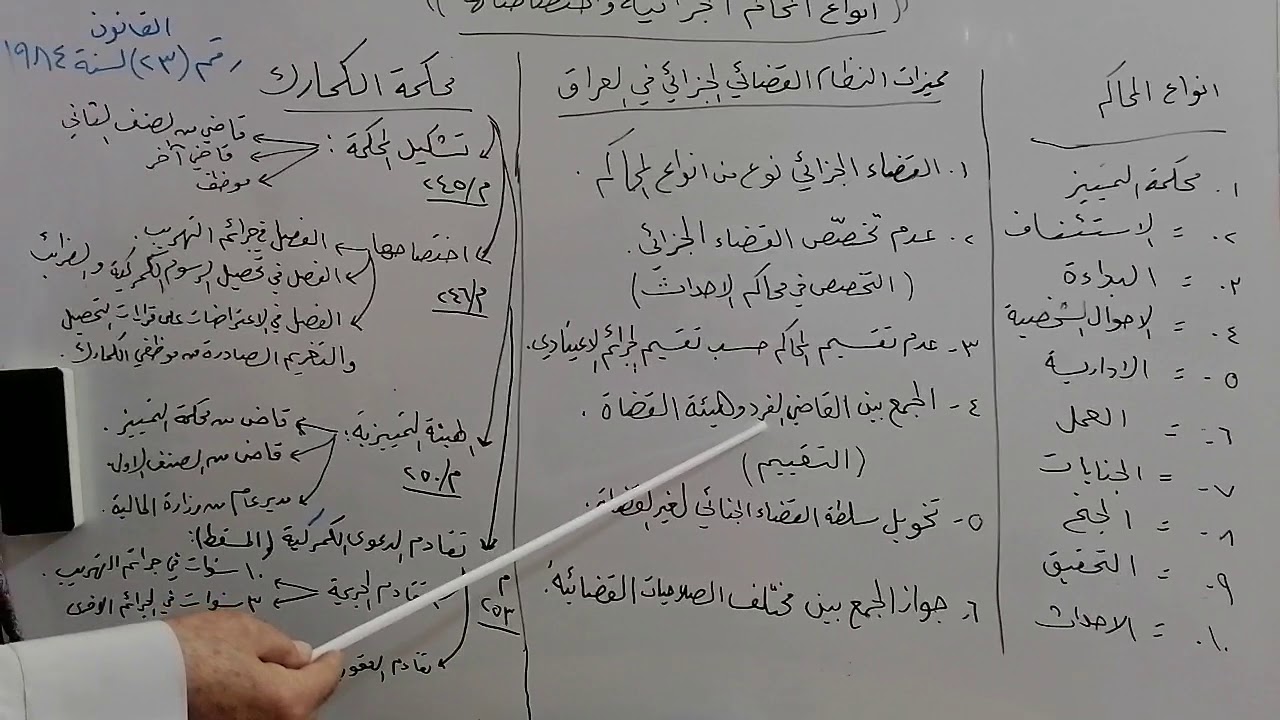 ((انواع المحاكم الجزائية واختصاصاتها))
انواع المحاكم
١. محكمة التمييز
٢. = الاستئناف
٣. = البداءة
٤. = الاحوال الشخصية
٥- = الادارية
٦- = العمل
٧- = الجنايات
٨- = الجنح
٩- = التحقيق
١٠. = الاحداث
مميزات النظام القضائي الجزائي في العراق
١. القضاء الجزائي نوع من انواع المحاكم .
٢. عدم تخصّص القضاء الجزائي.
(التخصص في محاكم الاحداث)
٣- عدم تقسيم المحاكم حسب تقسيم الجرائم الاعتيادي.
٤- الجمع بين القاضي الفرد وهيئة القضاة .
(التقييم)
٥- تخويل سلطة القضاء الجنائي لغير القضاة.
٦. جواز الجمع بين مختلف الصلاحيات القضائية.
القانون
رقم (٢٣) لسنة ١٩٨٤
محكمة الكمارك
تشكيل المحكمة :
م/٢٤٥
قاضي من الصنف الثاني
قاضي آخر
موظف
اختصاصها
م/٢٤٦
الفصل في جرائم التهريب.
الفصل في تحصيل الرسوم الكمركية والضرائب
الفصل في الاعتراضات على قرارات التحصيل
والتغريم الصادرة من موظفي الكمارك.
الهيئة التمييزية:
م/٢٥٠
قاض من محكمة التمييز .
قاض من الصنف الاول
مدير عام من وزارة المالية .
تقادم الدعوى الكمركية (المسقط):
م
٢٥٣
تقادم الجريمة
١٠ سنوات في جرائم التهريب.
٣ سنوات في الجرائم الاخرى
تقادم